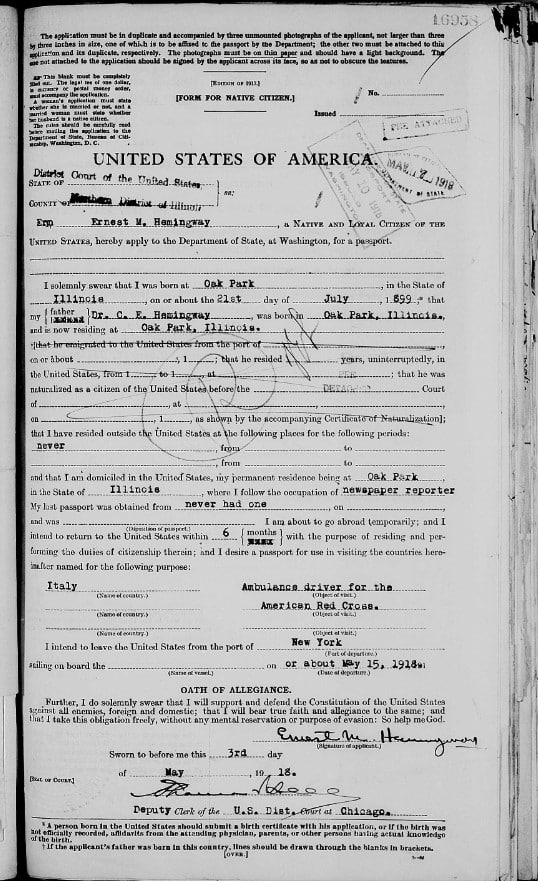 16958
The application must be in duplicate and accompanied by three unmounted photographs of the applicant, not larger than three
by three inches in size, one of which is to be affixed to the passport by the Department; the other two must be attached to this
application and its duplicate, respectively. The photographs must be on thin paper and should have a light background. The
one not attached to the application should be signed by the applicant across its face, so as not to obscure the features.
This blank must be completely
filled out. The legal fee of one dollar,
in currency or postal money order,
must accompany the application.
A woman's application must state
whether she is married or not, and a
married woman must state whether
her husband is a native citizen.
The rules should be carefully read
before mailing the application to the
Department of State, Bureau of Citi-
zenship, Washington, D. C.
[FORM FOR NATIVE CITIZEN.]
No.
Issued
FEE ATTACHED
MAY 10 1918
MAY 17 1918
DEPARTMENT OF STATE
UNITED STATES OF AMERICA.
District Court of the United States
STATE OF
ss:
COUNTY OF
Northern District of Illinois
Ernest M. Hemingway, a NATIVE AND LOYAL CITIZEN OF THE
UNITED STATES, hereby apply to the Department of State, at Washington, for a passport.
I solemnly swear that I was born at Oak Park, in the State of
Illinois, on or about the 21st day of July, 1899; that
my father Dr. C. E. Hemingway, was born in Oak Park, Illinois.,
and is now residing at Oak Park, Illinois.
[that he emigrated to the United States from the port of
on or about , 1 ; that he resided years, uninterruptedly, in
the United States, from 1 to 1 , at ; that he was
naturalized as a citizen of the United States before the Court
of , at ,
on , 1 , as shown by the accompanying Certificate of Naturalization];
that I have resided outside the United States at the following places for the following periods:
never , from to
, from to
and that I am domiciled in the United States, my permanent residence being at Oak Park,
in the State of Illinois, where I follow the occupation of newspaper reporter
My last passport was obtained from never had one, on
and was I am about to go abroad temporarily; and I
(Disposition of passport.)
intend to return to the United States within 6 months with the purpose of residing and per-
forming the duties of citizenship therein; and I desire a passport for use in visiting the countries here-
inafter named for the following purpose:
Italy Ambulance driver for the
(Name of country.) (Object of visit.)
American Red Cross.
(Name of country.) (Object of visit.)
(Name of country.) (Object of visit.)
I intend to leave the United States from the port of New York
(Port of departure.)
sailing on board the on or about May 15, 1918
(Name of vessel.) (Date of departure.)
OATH OF ALLEGIANCE.
Further, I do solemnly swear that I will support and defend the Constitution of the United States
against all enemies, foreign and domestic; that I will bear true faith and allegiance to the same; and
that I take this obligation freely, without any mental reservation or purpose of evasion: So help me God.
Ernest M. Hemingway
(Signature of applicant.)
Sworn to before me this 3rd day
of May, 1918.
[SEAL OF COURT.]
Deputy Clerk of the U.S. Dist. Court at Chicago.
* A person born in the United States should submit a birth certificate with his application, or if the birth was
not officially recorded, affidavits from the attending physician, parents, or other persons having actual knowledge
of the birth.
† If the applicant's father was born in this country, lines should be drawn through the blanks in brackets.
[OVER.]